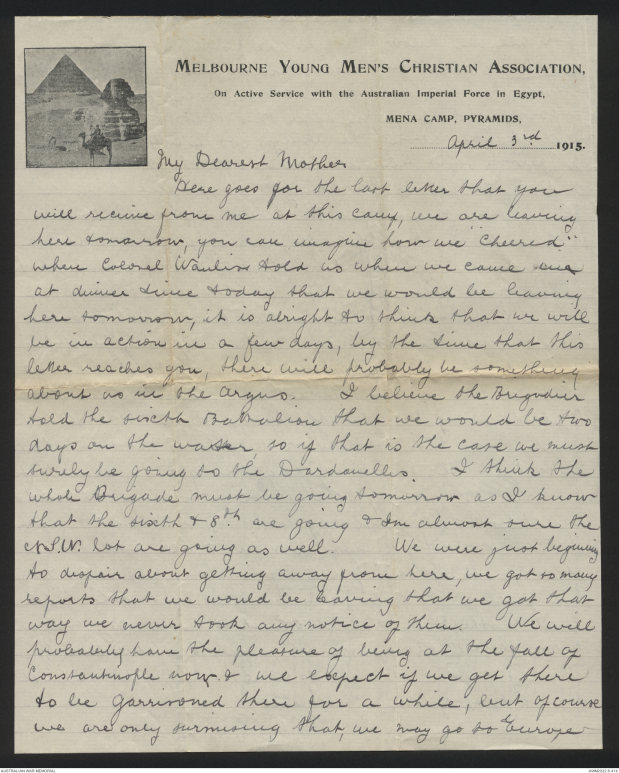 MELBOURNE YOUNG MEN'S CHRISTIAN ASSOCIATION,
On Active Service with the Australian Imperial Force in Egypt,
MENA CAMP, PYRAMIDS,
April 3rd 1915.
My Dearest Mother
Here goes for the last letter that you
will receive from me at this camp, we are leaving
here tomorrow, you can imagine how we "cheered"
when Colonel told us when we came
at dinner time today that we would be leaving
here tomorrow, it is alright to think that we will
be in action in a few days, by the time that this
letter reaches you, there will probably be something
about us in the Argus. I believe the Brigadier
told the sixth Battalion that we would be two
days on the water, so if that is the case we must
surely be going to the Dardanelles. I think the
whole Brigade must be going tomorrow as I know
that the sixth & 8th are going & I'm almost sure the
N.S.W. lot are going as well. We were just beginning
to despair about getting away from here, we got so many
reports that we would be leaving that we got that
way we never took any notice of them. We will
probably have the pleasure of being at the fall of
Constantinople now & we expect if we get there
to be garrisoned there for a while, but of course
we are only surmising that, we may go to Europe
AUSTRALIAN WAR MEMORIAL